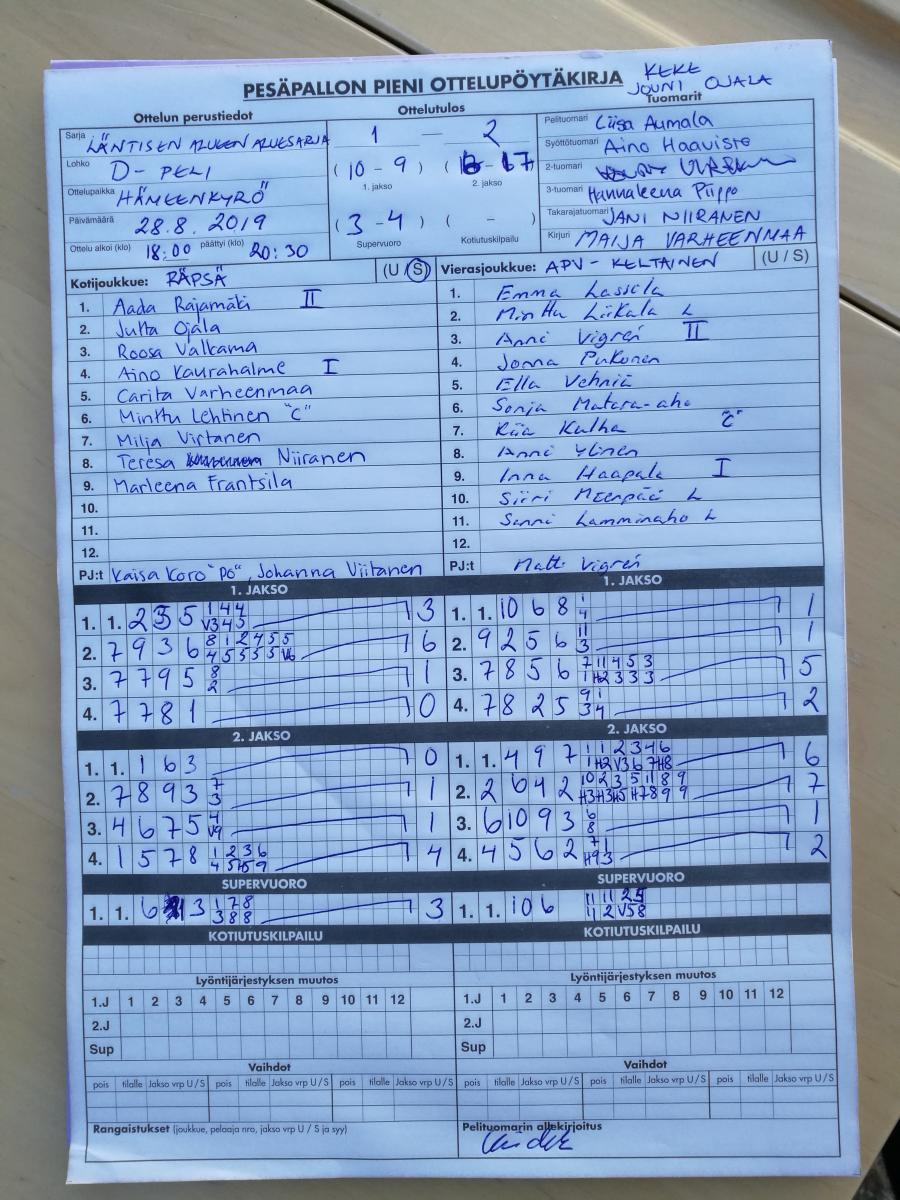 PESÄPALLON PIENI OTTELUPÖYTÄKIRJA
KEKE
JOUNI OJALA
Ottelun perustiedot
Ottelutulos
Tuomarit
Sarja LÄNTISEN ALUEEN ALUESARJA
Lohko D-PELI
Ottelupaikka HÄMEENKYRÖ
Päivämäärä 28.8.2019
Ottelu alkoi (klo) 18:00 päättyi (klo) 20:30
1 — 2
(10 - 9) ( - 17)
1. jakso 2. jakso
(3 - 4) ( - )
Supervuoro Kotiutuskilpailu
Pelituomari Liisa Aumala
Syöttötuomari Aino Haavisto
2-tuomari
3-tuomari Hannaleena Piippo
Takarajatuomari JANI NIIRANEN
Kirjuri MAIJA VARHEENMAA
Kotijoukkue: RÄPSÄ (U / S)
1. Aada Rajamäki II
2. Jutta Ojala
3. Roosa Valkama
4. Aino Kaurahalme I
5. Carita Varheenmaa
6. Minttu Lehtinen "C"
7. Milja Virtanen
8. Teresa Niiranen
9. Marleena Frantsila
10.
11.
12.
PJ:t Kaisa Koro "PÖ", Johanna Viitanen
Vierasjoukkue: APV - KELTAINEN (U / S)
1. Emma Lassila
2. Minttu Liikala L
3. Anni Vigren II
4. Jonna Pukonen
5. Ella Vehniä
6. Sonja Matara-aho
7. Riia Kulha "C"
8. Anni Ylinen
9. Inna Haapala I
10. Siiri Meenpää L
11. Sanni Lamminaho L
12.
PJ:t Matti Vigren
1. JAKSO
1. 1. 2 3 5 1 4 4 3
V3 4 5
2. 7 9 3 6 8 1 2 4 5 5 6
4 5 5 5 5 V6
3. 7 7 9 5 8 1
2
4. 7 7 8 1 0
2. JAKSO
1. 1. 1 6 3 0
2. 7 8 9 3 7 1
3
3. 4 6 7 5 4 1
V9
4. 1 5 7 8 1 2 3 6 4
4 5 H5 9
SUPERVUORO
1. 1. 6 3 1 7 8 3
3 8 8
1. JAKSO
1. 1. 10 6 8 1 1
4
2. 9 2 5 6 11 1
3
3. 7 8 5 6 7 11 4 5 3 5
1 H2 3 3 3
4. 7 8 2 5 9 1 2
3 4
2. JAKSO
1. 1. 4 9 7 1 1 2 3 4 6 6
1 H2 V3 6 7 H8
2. 2 6 4 2 10 2 3 5 11 8 9 7
H3 H3 H5 H7 8 9 9
3. 6 10 9 3 6 1
8
4. 4 5 6 2 7 1 2
H9 3
SUPERVUORO
1. 1. 10 6 11 11 2 5
11 2 V5 8
KOTIUTUSKILPAILU
KOTIUTUSKILPAILU
Lyöntijärjestyksen muutos
1.J 1 2 3 4 5 6 7 8 9 10 11 12
2.J
Sup
Lyöntijärjestyksen muutos
1.J 1 2 3 4 5 6 7 8 9 10 11 12
2.J
Sup
Vaihdot
pois tilalle Jakso vrp U / S pois tilalle Jakso vrp U / S pois tilalle Jakso vrp U / S
Vaihdot
pois tilalle Jakso vrp U / S pois tilalle Jakso vrp U / S pois tilalle Jakso vrp U / S
Rangaistukset (joukkue, pelaaja nro, jakso vrp U / S ja syy)
Pelituomarin allekirjoitus